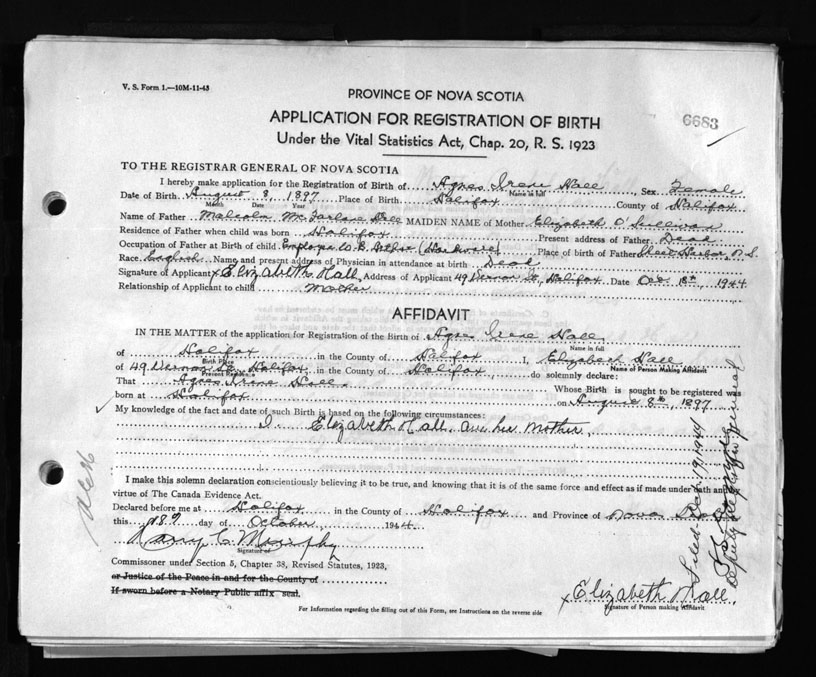 V. S. Form 1.—10M-11-43
PROVINCE OF NOVA SCOTIA
6683
APPLICATION FOR REGISTRATION OF BIRTH
Under the Vital Statistics Act, Chap. 20, R. S. 1923
TO THE REGISTRAR GENERAL OF NOVA SCOTIA
I hereby make application for the Registration of Birth of Agnes Irene Hall Sex Female
Name in full
Date of Birth August 8, 1897 Place of Birth Halifax County of Halifax
Month Date Year
Name of Father Malcolm McFarlane Hall MAIDEN NAME of Mother Elizabeth O'Sullivan
Residence of Father when child was born Halifax Present address of Father Dead
Occupation of Father at Birth of child Employee W. B. Arthur (Hardware) Place of birth of Father Sheet Harbor N.S.
Race English Name and present address of Physician in attendance at birth Dead
Signature of Applicant x Elizabeth Hall Address of Applicant 49 Vernon St, Halifax Date Oct 18th, 1944
Relationship of Applicant to child Mother
AFFIDAVIT
IN THE MATTER of the application for Registration of the Birth of Agnes Irene Hall
Name in full
of Halifax in the County of Halifax I, Elizabeth Hall
Birth Place Name of Person Making Affidavit
of 49 Vernon St, Halifax in the County of Halifax do solemnly declare:
Present Residence
That Agnes Irene Hall Whose Birth is sought to be registered was
born at Halifax on August 8th, 1897
My knowledge of the fact and date of such Birth is based on the following circumstances:
I Elizabeth Hall, am her Mother.
I make this solemn declaration conscientiously believing it to be true, and knowing that it is of the same force and effect as if made under oath and
virtue of The Canada Evidence Act.
Declared before me at Halifax in the County of Halifax and Province of Nova
this 18th day of October 1944
Harry C Murphy
Signature of
Commissoner under Section 5, Chapter 38, Revised Statutes, 1923,
or Justice of the Peace in and for the County of
If sworn before a Notary Public affix seal.
x Elizabeth Hall
Signature of Person making Affidavit
For Information regarding the filling out of this Form, see Instructions on the reverse side
Deputy Registrar General